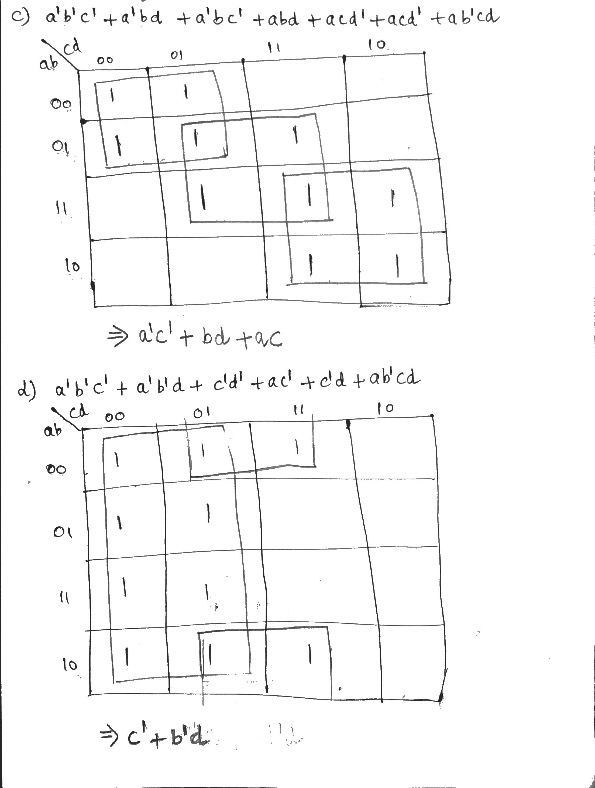 c) a'b'c' + a'bd + a'bc' + abd + acd' + acd' + ab'cd
cd
ab 00 01 11 10
00 1 1
01 1 1 1
11 1 1 1
10 1 1
⇒ a'c' + bd + ac
d) a'b'c' + a'b'd + c'd' + ac' + c'd + ab'cd
cd 00 01 11 10
ab
00 1 1 1
01 1 1
11 1 1
10 1 1 1
⇒ c' + b'd